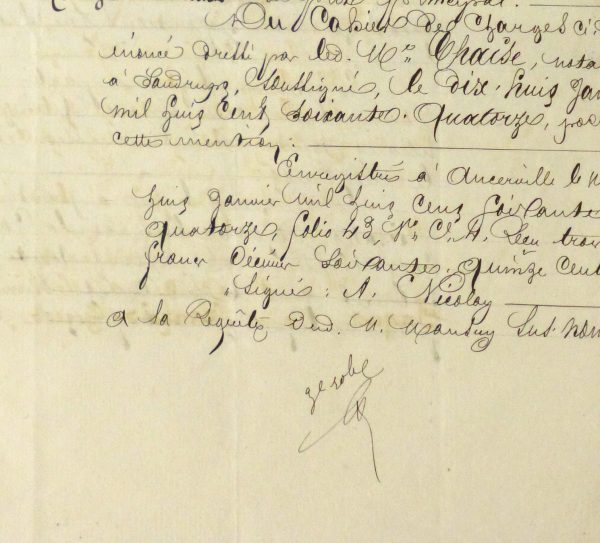 Du Cahier des Charges ci-
énoncé dressé par led. Me. Chaise, nota
à Saudrupt, soussigné, le dix-huit Jan
mil huit cent soixante-quatorze, por
cette mention:
Enregistré à Ancerville le
huit Janvier mil huit cent soixante
quatorze, folio 43, Vo. C. A. Reçu
franc décimes soixante-quinze cent
signé: A. Nicolay
a la Requête dud. M. Mansuy sus-nom